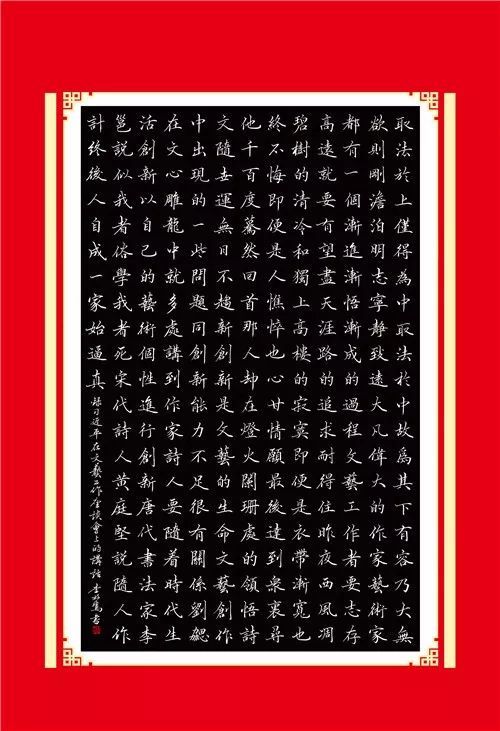 取法於上僅得為中取法於中故爲其下有容乃大無
欲則剛澹泊明志寧靜致遠大凡偉大的作家藝術家
都有一個漸進漸悟漸成的過程文藝工作者要志存
高遠就要有望盡天涯路的追求耐得住昨夜西風凋
碧樹的清冷和獨上高樓的寂寞即便是衣帶漸寬也
終不悔即便是人憔悴也心甘情願最後達到衆裏尋
他千百度驀然回首那人却在燈火闌珊處的領悟詩
文隨世運無日不趨新創新是文藝的生命文藝創作
中出現的一些問題同創新能力不足很有關係劉勰
在文心雕龍中就多處講到作家詩人要隨着時代生
活創新以自己的藝術個性進行創新唐代書法家李
邕説似我者俗學我者死宋代詩人黄庭堅説隨人作
計終後人自成一家始逼真
錄習近平在文藝工作座談會上的講話 李 書